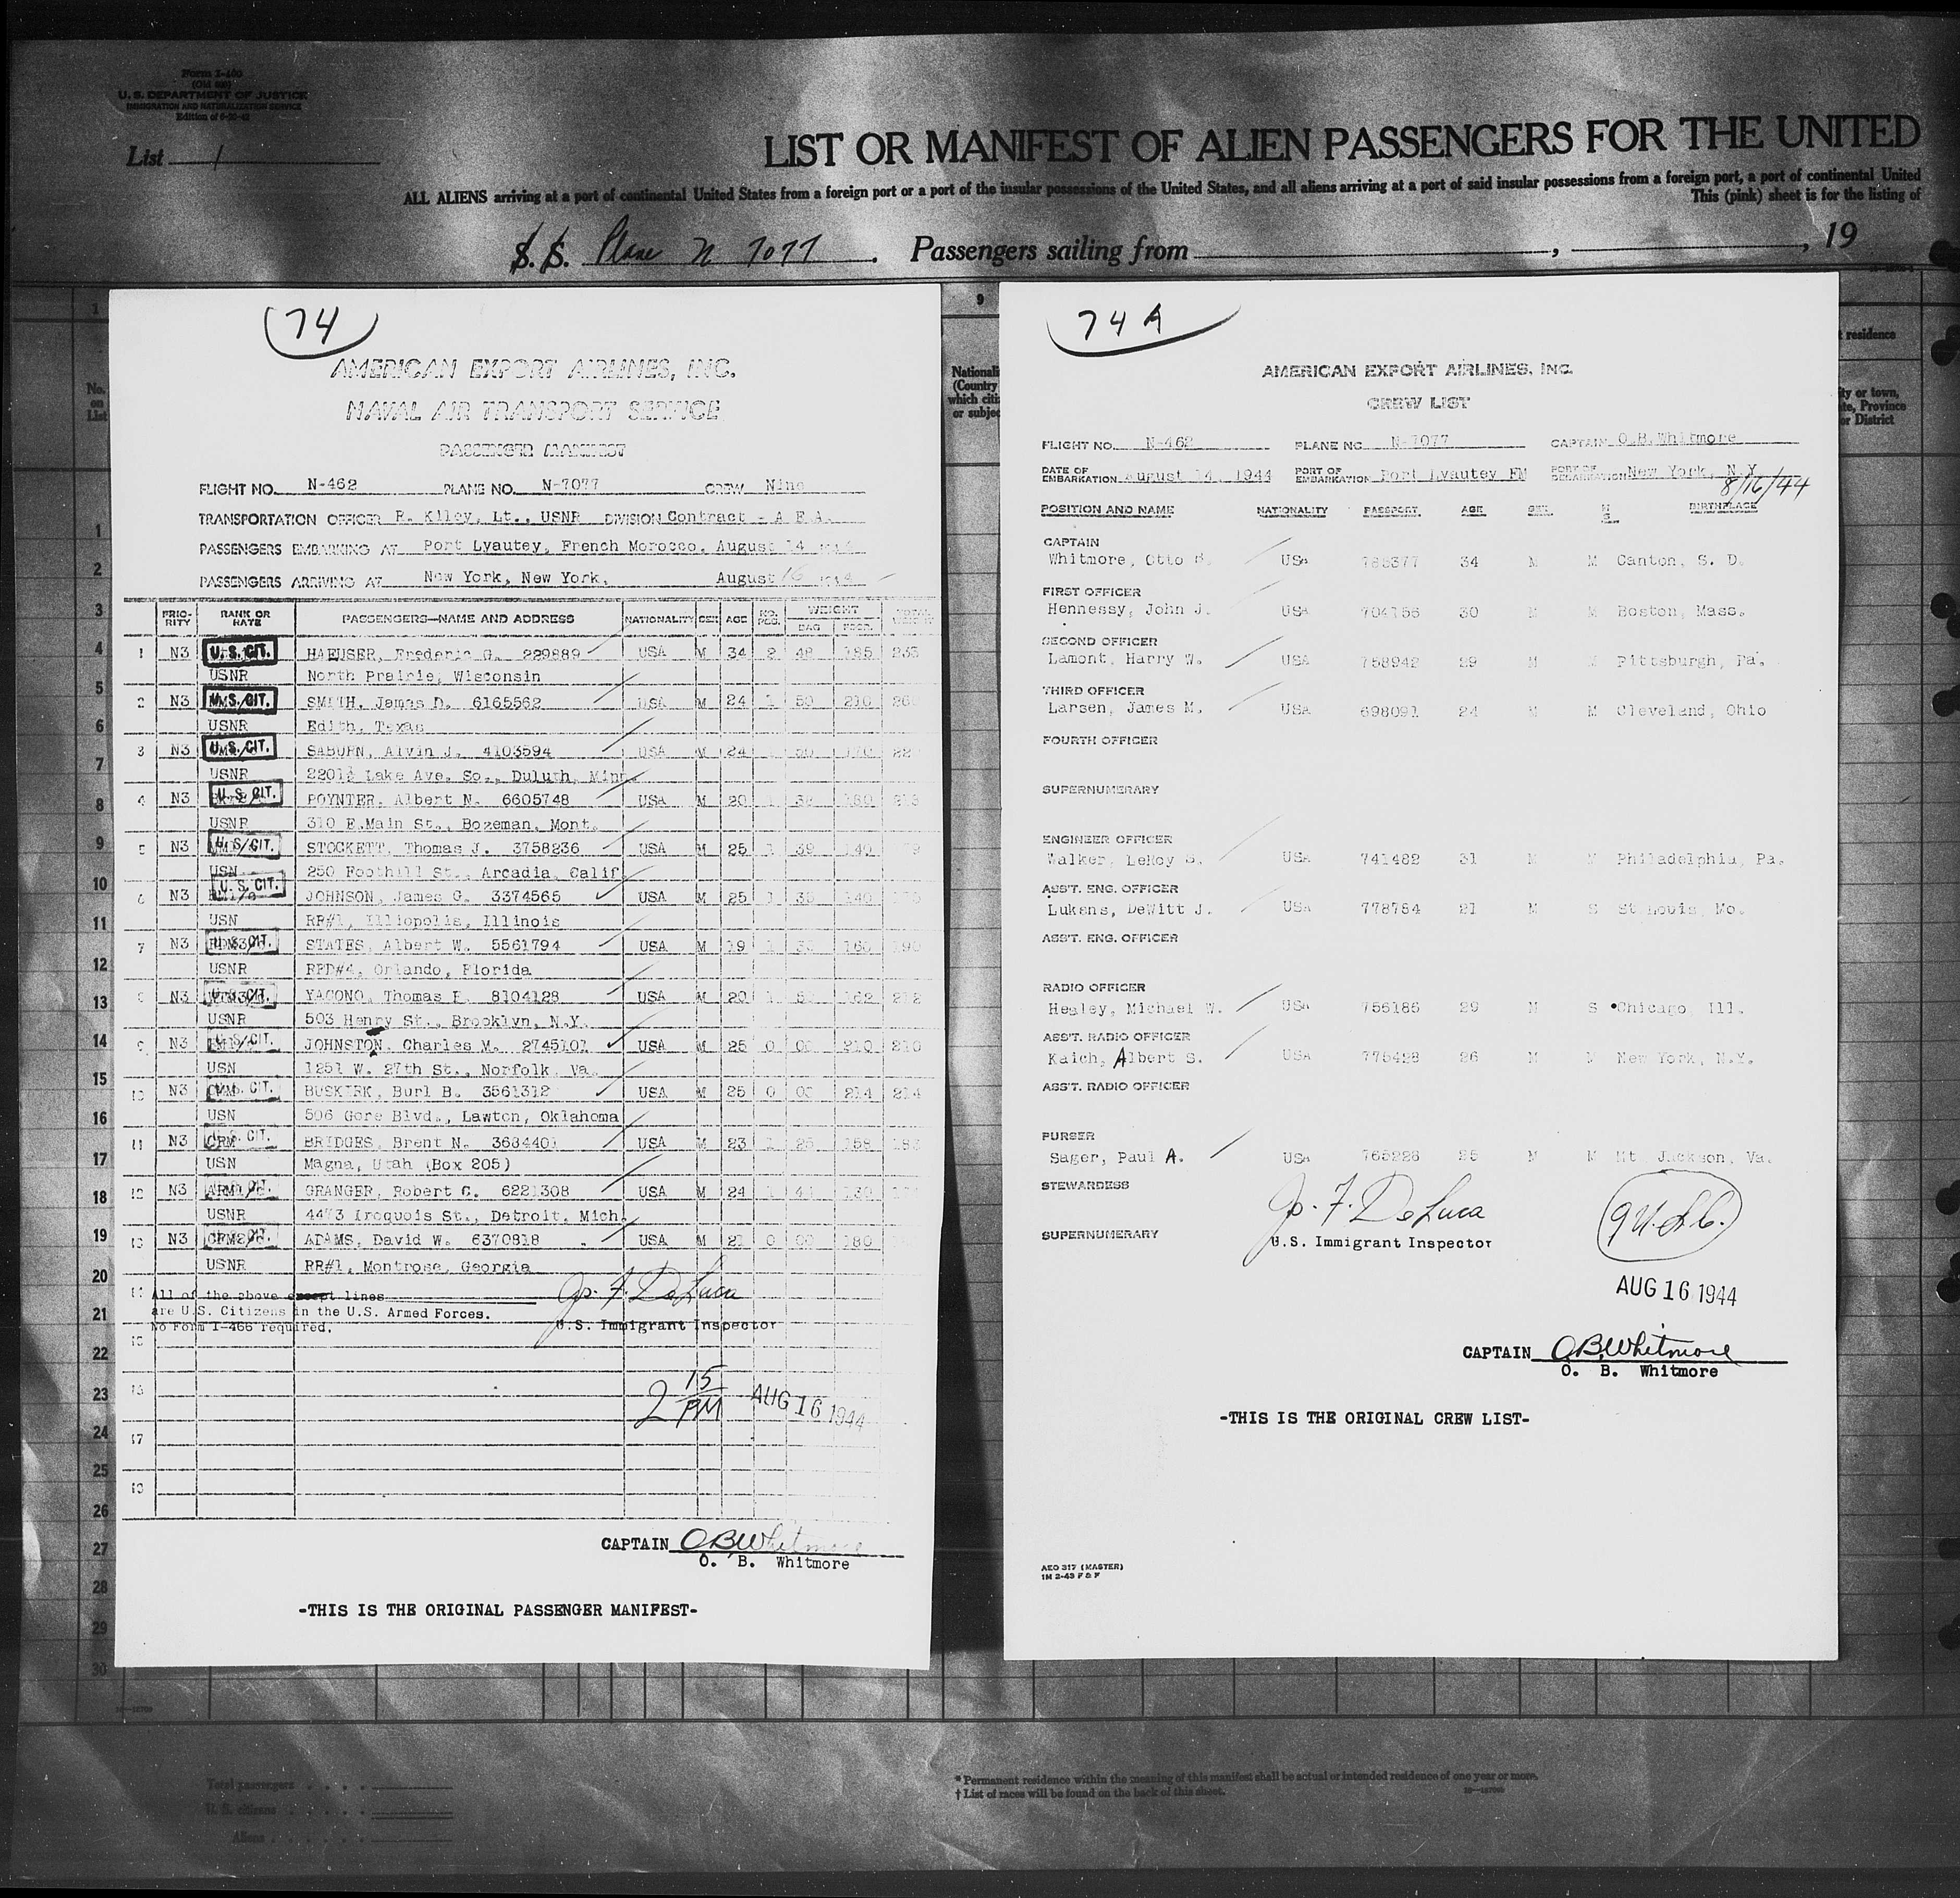 Form I-460
(Old 500)
U. S. DEPARTMENT OF JUSTICE
IMMIGRATION AND NATURALIZATION SERVICE
List 1
LIST OR MANIFEST OF ALIEN PASSENGERS FOR THE UNITED
ALL ALIENS arriving at a port of continental United States from a foreign port or a port of the insular possessions of the United States, and all aliens arriving at a port of said insular possessions from a foreign port, a port of continental United
This (pink) sheet is for the listing of
S.S. Plane N 7077 . Passengers sailing from , , 19
74
AMERICAN EXPORT AIRLINES, INC.
NAVAL AIR TRANSPORT SERVICE
PASSENGER MANIFEST
FLIGHT NO. N-462 PLANE NO. N-7077 CREW Nine
TRANSPORTATION OFFICER R. Kiley, Lt., USNR DIVISION Contract - A E A
PASSENGERS EMBARKING AT Port Lyautey, French Morocco, August 14 1944
PASSENGERS ARRIVING AT New York, New York, August 16 1944
PRIO-RITY RANK OR RATE PASSENGERS—NAME AND ADDRESS NATIONALITY SEX AGE NO. PCS. WEIGHT BAG PASS. TOTAL
1 N3 U.S. CIT. HAEUSER, Frederic G. 229889 USA M 34 2 48 185 233
USNR North Prairie, Wisconsin
2 N3 U.S. CIT. SMITH, James D. 6165562 USA M 24 1 50 210 260
USNR Edith, Texas
3 N3 U.S. CIT. SABURN, Alvin J. 4103594 USA M 24 1 50 170
USNR 2201½ Lake Ave. So., Duluth, Minn.
4 N3 U.S. CIT. POYNTER, Albert N. 6605748 USA M 20 1 180
USNR 310 E.Main St., Bozeman, Mont.
5 N3 U.S. CIT. STOCKETT, Thomas J. 3758236 USA M 25 1 39 140 179
USN 250 Foothill St., Arcadia, Calif.
6 N3 U.S. CIT. JOHNSON, James G. 3374565 USA M 25 1 140
USN RR#1, Illiopolis, Illinois
7 N3 U.S. CIT. STATES, Albert W. 5561794 USA M 19 1 190
USNR RFD#4, Orlando, Florida
8 N3 U.S. CIT. YACONO, Thomas 8104128 USA M 20 1 162 212
USNR 503 Henry St., Brooklyn, N.Y.
9 N3 U.S. CIT. JOHNSTON, Charles M. 2745101 USA M 25 0 00 210 210
USN 1251 W. 27th St., Norfolk, Va.
10 N3 CIT. BUSKIRK, Burl B. 3561312 USA M 25 0 00 214 214
USN 506 Gore Blvd., Lawton, Oklahoma
11 N3 CRM U.S. CIT. BRIDGES, Brent N. 3684401 USA M 23 1 25 158 183
USN Magna, Utah (Box 205)
12 N3 GRANGER, Robert C. 6221308 USA M 24 1 41 130
USNR 4473 Iroquois St., Detroit, Mich.
13 N3 ADAMS, David W. 6370818 USA M 21 0 00 180
USNR RR#1, Montrose, Georgia
14 All of the above except lines
are U.S. Citizens in the U.S. Armed Forces.
No Form I-466 required.
Jo. F. DeLuca
U.S. Immigrant Inspector
2 15 PM AUG 16 1944
CAPTAIN OBWhitmore
O. B. Whitmore
-THIS IS THE ORIGINAL PASSENGER MANIFEST-
74 A
AMERICAN EXPORT AIRLINES, INC.
CREW LIST
FLIGHT NO. N-462 PLANE NO. N-7077 CAPTAIN O.B.Whitmore
DATE OF EMBARKATION August 14, 1944 PORT OF EMBARKATION Port Lyautey FM PORT OF DEBARKATION New York, N.Y.
8/16/44
POSITION AND NAME NATIONALITY PASSPORT AGE SEX M S BIRTHPLACE
CAPTAIN
Whitmore, Otto B. USA 785377 34 M M Canton, S. D.
FIRST OFFICER
Hennessy, John J. USA 704156 30 M M Boston, Mass.
SECOND OFFICER
Lamont, Harry W. USA 758942 29 M M Pittsburgh, Pa.
THIRD OFFICER
Larsen, James M. USA 698091 24 M M Cleveland, Ohio
FOURTH OFFICER
SUPERNUMERARY
ENGINEER OFFICER
Walker, LeRoy S. USA 741482 31 M M Philadelphia, Pa.
ASS'T. ENG. OFFICER
Lukens, DeWitt J. USA 778754 21 M S St.Louis, Mo.
ASS'T. ENG. OFFICER
RADIO OFFICER
Healey, Michael W. USA 756186 29 M S Chicago, Ill.
ASS'T. RADIO OFFICER
Kaich, Albert S. USA 775428 26 M M New York, N.Y.
ASS'T. RADIO OFFICER
PURSER
Sager, Paul A. USA 765228 25 M M Mt. Jackson, Va.
STEWARDESS
SUPERNUMERARY
Jo. F. DeLuca
U.S. Immigrant Inspector
9 U.S.C.
AUG 16 1944
CAPTAIN OBWhitmore
O. B. Whitmore
-THIS IS THE ORIGINAL CREW LIST-
AEO 317 (MASTER)
1M 2-43 F & F
* Permanent residence within the meaning of this manifest shall be actual or intended residence of one year or more.
† List of races will be found on the back of this sheet.
Total passengers
U. S. citizens
Aliens